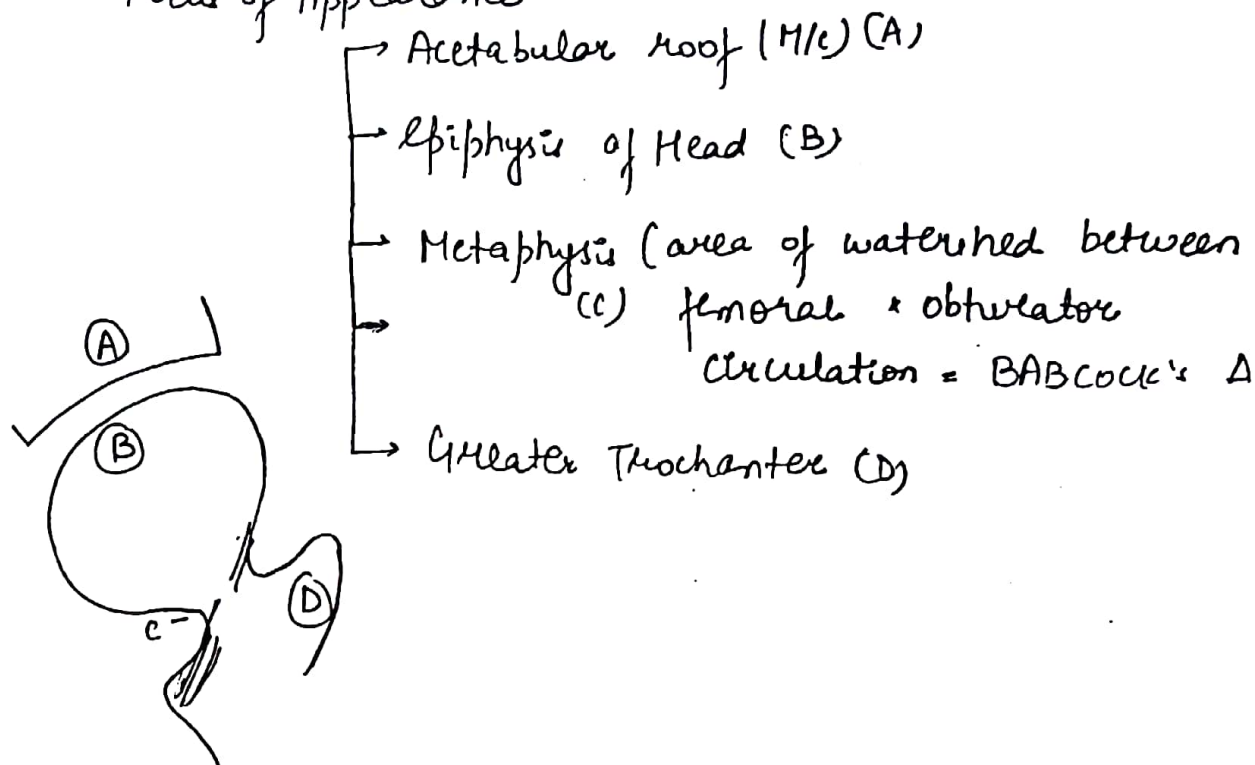 of
Acetabular roof (M/c) (A)
Epiphysis of Head (B)
Metaphysis (area of watershed between
(C) femoral & obturator
circulation = BABCOCK's Δ
Greater Trochanter (D)
A
B
C
D